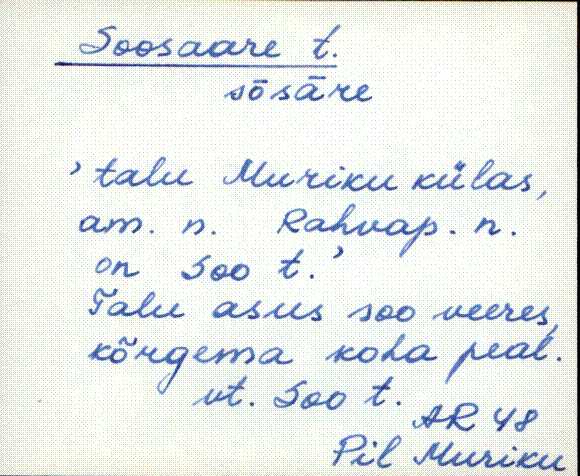 Soosaare t.
sōsāre
’talu Muriku külas,
am. n. Rahvap. n.
on Soo t.’
Talu asus soo veeres,
kõrgema koha peal.
vt. Soo t.
AR 48
Pil Muriku